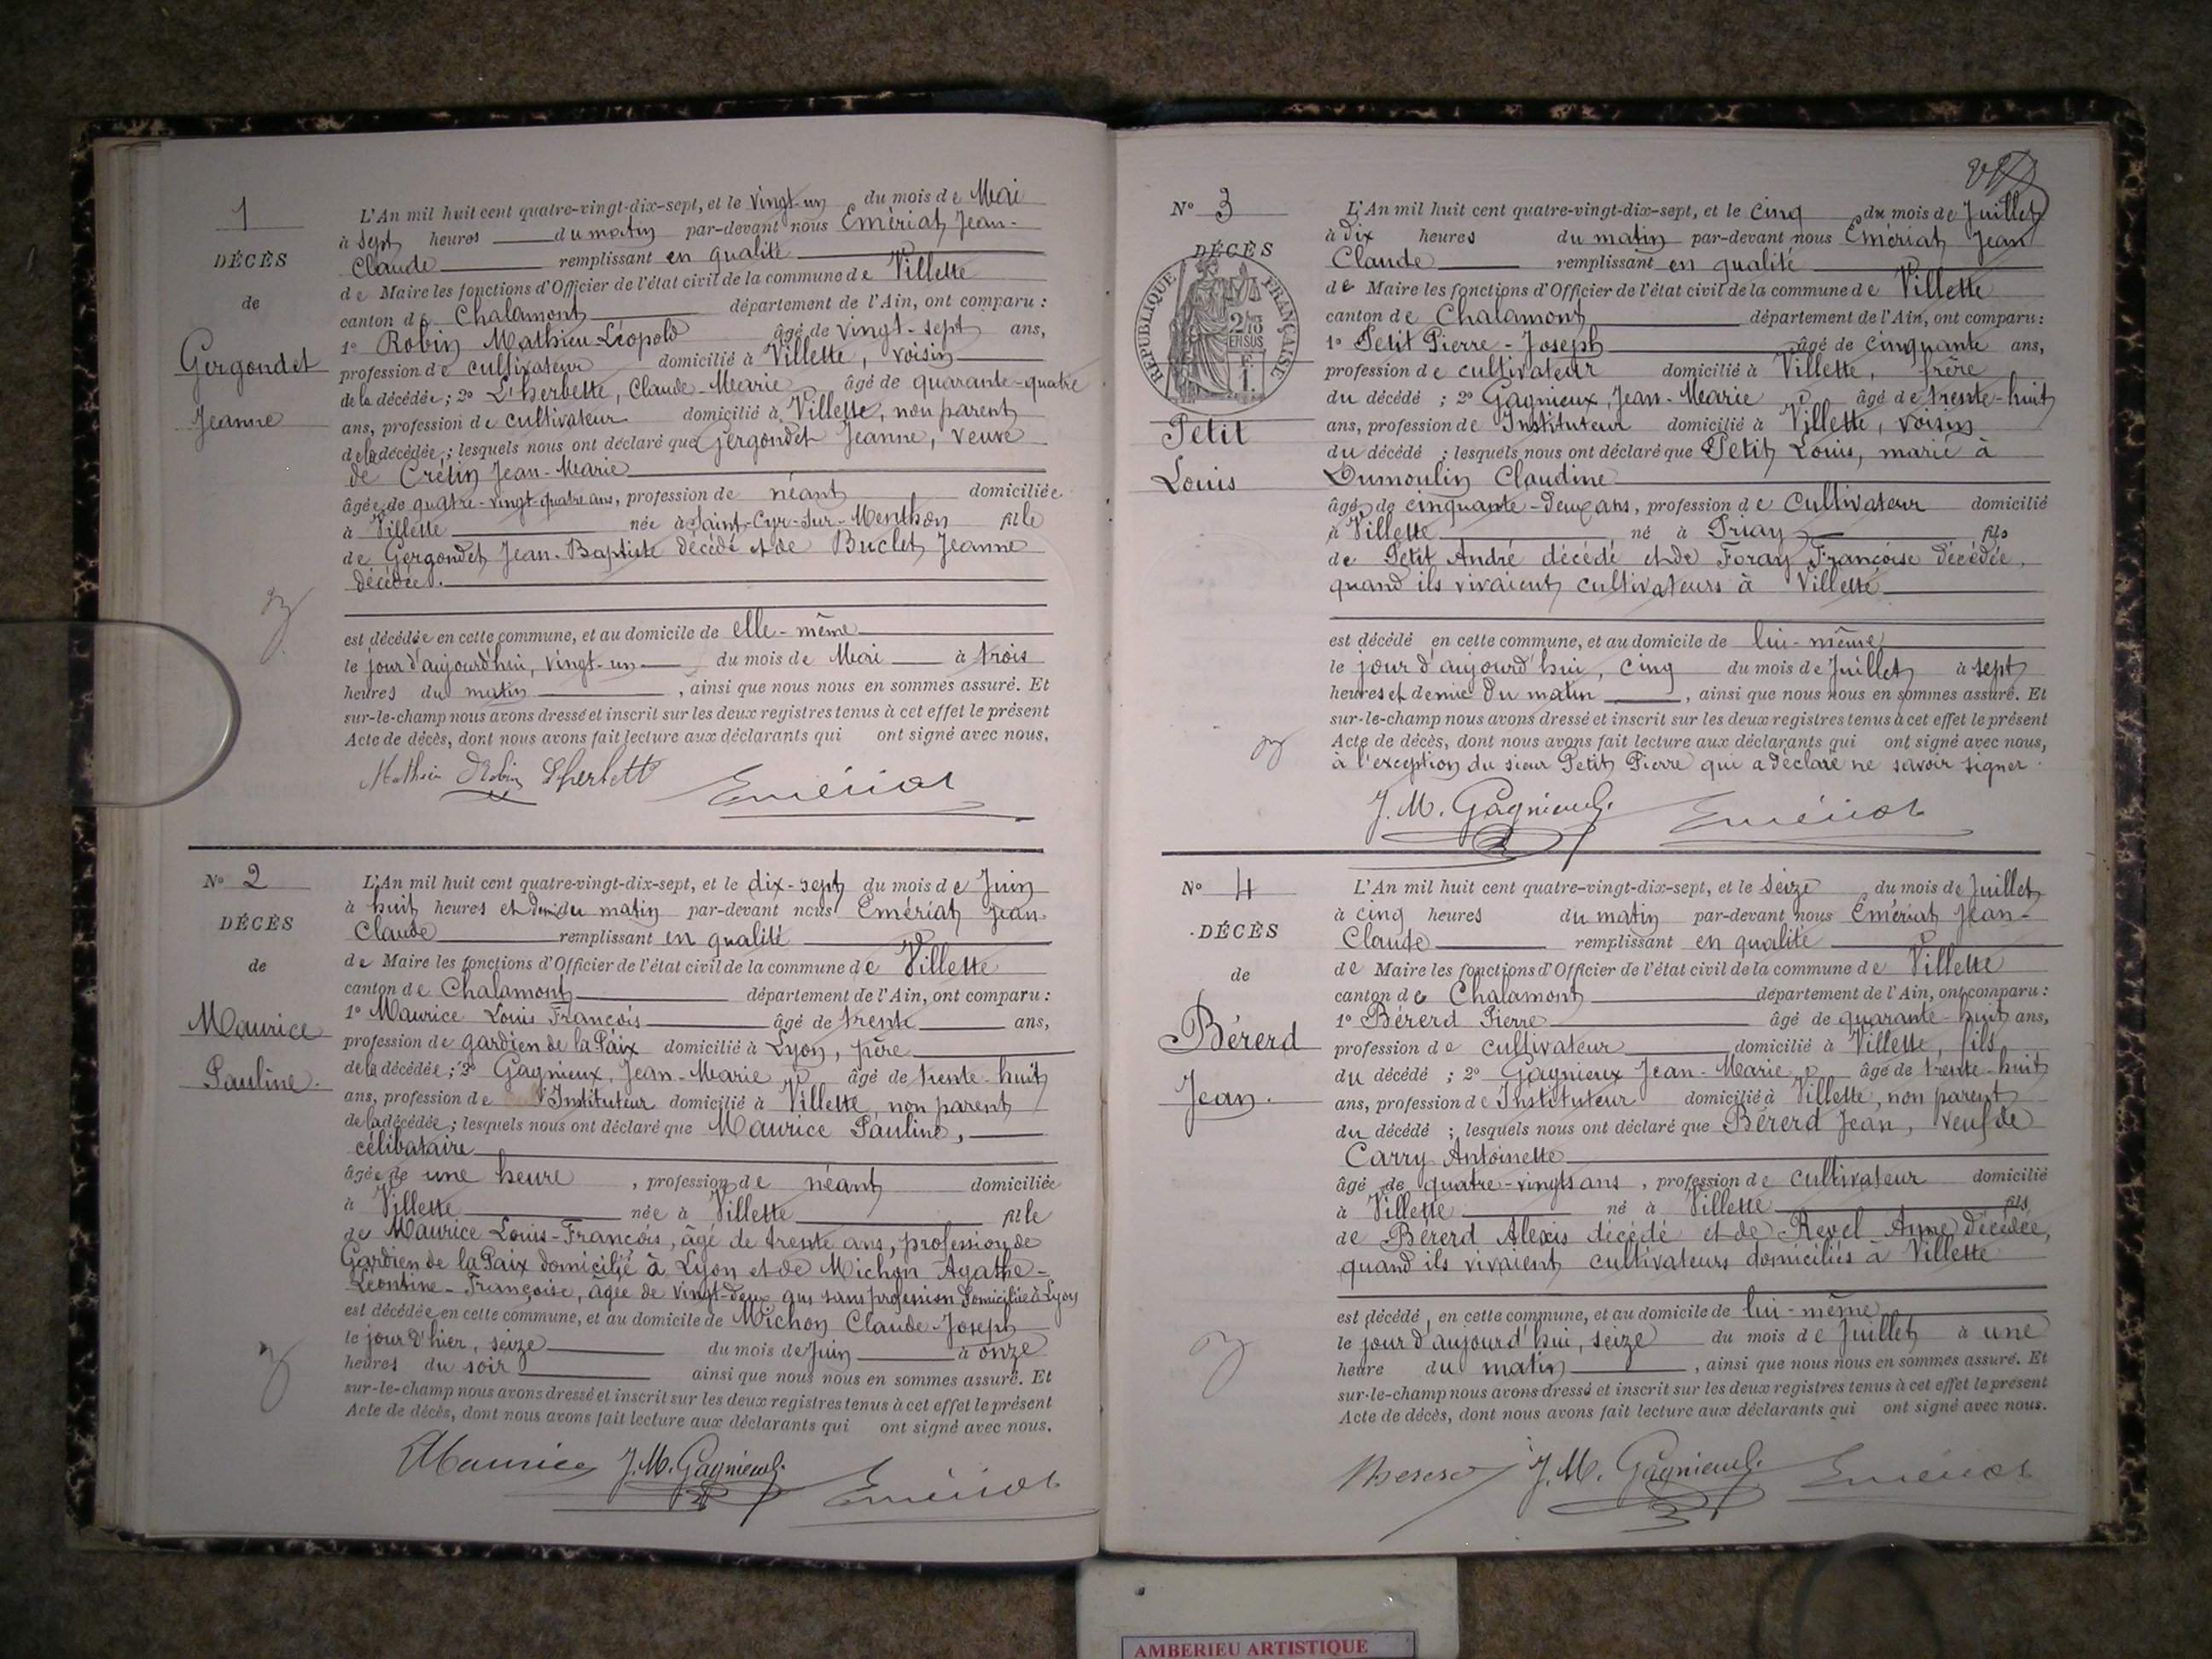 1
DÉCÈS
de
Gergondet
Jeanne
L'An mil huit cent quatre-vingt-dix-sept, et le vingt-un du mois de Mai
à sept heures du matin par-devant nous Emériat Jean-
Claude remplissant en qualité
de Maire les fonctions d'Officier de l'état civil de la commune de Villette
canton de Chalamont département de l'Ain, ont comparu :
1º Robin Mathieu Léopold âgé de vingt-sept ans,
profession de cultivateur domicilié à Villette, voisin
de la décédée ; 2º L'herbette, Claude-Marie âgé de quarante-quatre
ans, profession de cultivateur domicilié à Villette, non parent
de la décédée ; lesquels nous ont déclaré que Gergondet Jeanne, veuve
de Crétin Jean-Marie
âgée de quatre-vingt-quatre ans, profession de néant domiciliée
à Villette née à Saint-Cyr-sur-Menthon fille
de Gergondet Jean-Baptiste décédé et de Buclet Jeanne
décédée.
est décédée en cette commune, et au domicile de elle-même
le jour d'aujourd'hui, vingt-un du mois de Mai à trois
heures du matin, ainsi que nous nous en sommes assuré. Et
sur-le-champ nous avons dressé et inscrit sur les deux registres tenus à cet effet le présent
Acte de décès, dont nous avons fait lecture aux déclarants qui ont signé avec nous.
Mathieu Robin Lherbette Emériat
Nº 2
DÉCÈS
de
Maurice
Pauline.
L'An mil huit cent quatre-vingt-dix-sept, et le dix-sept du mois de Juin
à huit heures et demi du matin par-devant nous Emériat Jean-
Claude remplissant en qualité
de Maire les fonctions d'Officier de l'état civil de la commune de Villette
canton de Chalamont département de l'Ain, ont comparu :
1º Maurice Louis François âgé de trente ans,
profession de gardien de la Paix domicilié à Lyon, père
de la décédée ; 2º Gagnieux, Jean-Marie âgé de trente-huit
ans, profession de Instituteur domicilié à Villette, non parent
de la décédée ; lesquels nous ont déclaré que Maurice Pauline,
célibataire
âgée de une heure, profession de néant domiciliée
à Villette née à Villette fille
de Maurice Louis-François, âgé de trente ans, profession de
Gardien de la Paix domicilié à Lyon et de Michon Agathe-
Léontine-Françoise, âgée de vingt-deux ans sans profession domiciliée à Lyon
est décédée en cette commune, et au domicile de Michon Claude-Joseph
le jour d'hier, seize du mois de Juin à onze
heures du soir ainsi que nous nous en sommes assuré. Et
sur-le-champ nous avons dressé et inscrit sur les deux registres tenus à cet effet le présent
Acte de décès, dont nous avons fait lecture aux déclarants qui ont signé avec nous.
Maurice J.M. Gagnieux Emériat
Nº 3
DÉCÈS
RÉPUBLIQUE FRANÇAISE
2/10
EN SUS
F
1.
Petit
Louis
L'An mil huit cent quatre-vingt-dix-sept, et le cinq du mois de Juillet
à dix heures du matin par-devant nous Emériat Jean
Claude remplissant en qualité
de Maire les fonctions d'Officier de l'état civil de la commune de Villette
canton de Chalamont département de l'Ain, ont comparu :
1º Petit Pierre-Joseph âgé de cinquante ans,
profession de cultivateur domicilié à Villette, frère
du décédé ; 2º Gagnieux, Jean-Marie âgé de trente-huit
ans, profession de Instituteur domicilié à Villette, voisin
du décédé ; lesquels nous ont déclaré que Petit Louis, marié à
Dumoulin Claudine
âgé de cinquante-deux ans, profession de Cultivateur domicilié
à Villette né à Priay fils
de Petit André décédé et de Foray Françoise décédée,
quand ils vivaient cultivateurs à Villette
est décédé en cette commune, et au domicile de lui-même
le jour d'aujourd'hui, cinq du mois de Juillet à sept
heures et demie du matin, ainsi que nous nous en sommes assuré. Et
sur-le-champ nous avons dressé et inscrit sur les deux registres tenus à cet effet le présent
Acte de décès, dont nous avons fait lecture aux déclarants qui ont signé avec nous,
à l'exception du sieur Petit Pierre qui a déclaré ne savoir signer.
J.M. Gagnieux Emériat
Nº 4
DÉCÈS
de
Bérerd
Jean.
L'An mil huit cent quatre-vingt-dix-sept, et le seize du mois de Juillet
à cinq heures du matin par-devant nous Emériat Jean-
Claude remplissant en qualité
de Maire les fonctions d'Officier de l'état civil de la commune de Villette
canton de Chalamont département de l'Ain, ont comparu :
1º Bérerd Pierre âgé de quarante-huit ans,
profession de cultivateur domicilié à Villette, fils
du décédé ; 2º Gagnieux Jean-Marie âgé de trente-huit
ans, profession de Instituteur domicilié à Villette, non parent
du décédé ; lesquels nous ont déclaré que Bérerd Jean, veuf de
Carry Antoinette
âgé de quatre-vingts ans, profession de Cultivateur domicilié
à Villette né à Villette fils
de Bérerd Alexis décédé et de Revel Anne décédée,
quand ils vivaient cultivateurs domiciliés à Villette
est décédé, en cette commune, et au domicile de lui-même
le jour d'aujourd'hui, seize du mois de Juillet à une
heure du matin, ainsi que nous nous en sommes assuré. Et
sur-le-champ nous avons dressé et inscrit sur les deux registres tenus à cet effet le présent
Acte de décès, dont nous avons fait lecture aux déclarants qui ont signé avec nous.
J.M. Gagnieux Emériat
AMBERIEU ARTISTIQUE